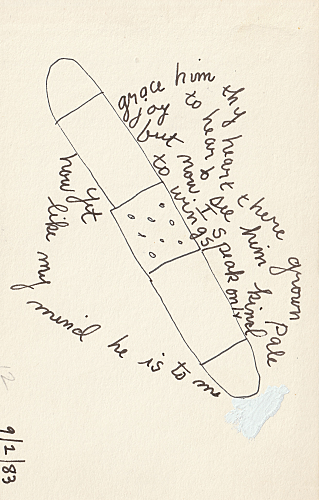 grace him thy heart there grown pale
joy to hear & see him kind
but now I speak
to wings
how yet
like my mind he is to me
12
9/2/83